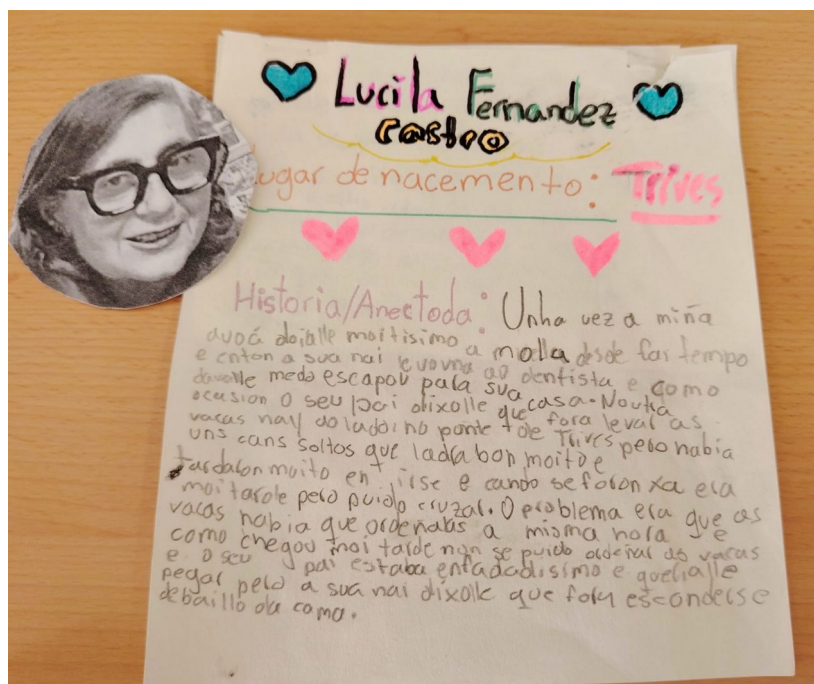 Lucila Fernandez
Castro
Lugar de nacemento: Trives
Historia/Anectoda: Unha vez a miña
avoá doialle moitisimo a molla desde fai tempo
e enton a sua nai levouna ao dentista e como
davalle medo escapou para sua casa. Noutra
ocasion o seu pai dixolle que fora levar as
vacas hay do lado no ponte de Trives pero habia
uns cans soltos que ladrabon moito e
tardabon moito en irse e cando se foron xa era
moi tarde pero puido cruzar. O problema era que as
vacas habia que ordeñalas a misma hora e
como chegou moi tarde non se puido ordeñar as vacas
e o seu pai estaba enfadadisimo e querialle
pegar pero a sua nai dixolle que fora esconderse
debaillo da cama.